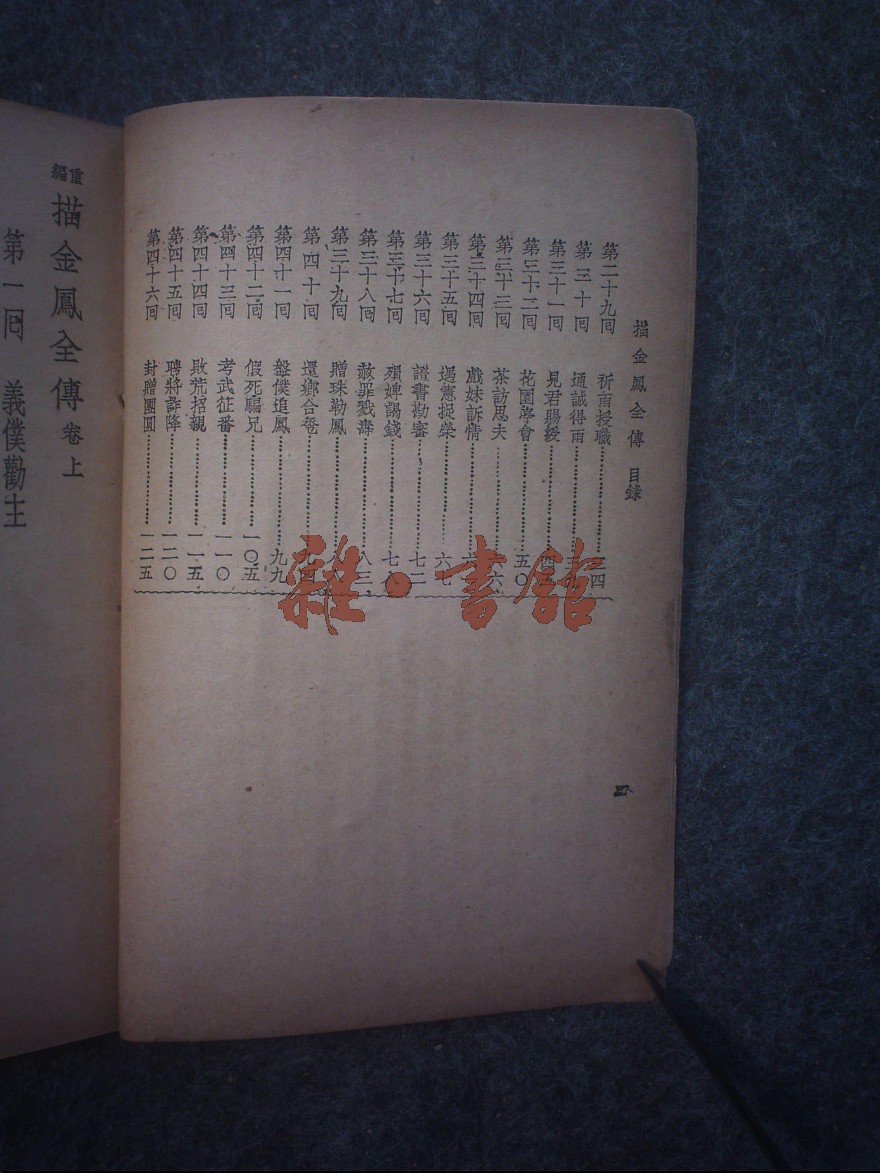 描金鳳全傳 目錄
第二十九回 祈雨授職 四
第三十回 通誠得雨
第三十一回 見君賜綬 四
第三十二回 花園會 五〇
第三十三回 茶訪思夫 六
第三十四回 戲妹訴情 六
第三十五回 遇憲捉榮 六一
第三十六回 證書勘審 七二
第三十七回 婢謁錢 七
第三十八回 赦罪戮壽 八三
第三十九回 贈珠勒鳳 八
第四十回 還鄉合巹
第四十一回 盤僕追鳳 九九
第四十二回 假死騙兄 一〇五
第四十三回 考武征番 一一〇
第四十四回 敗荒招親 一一五
第四十五回 聘將詐降 一二〇
第四十六回 封贈團圓 一二五
四
雜·書館
重編描金鳳全傳 卷上
第一回 義僕勸主